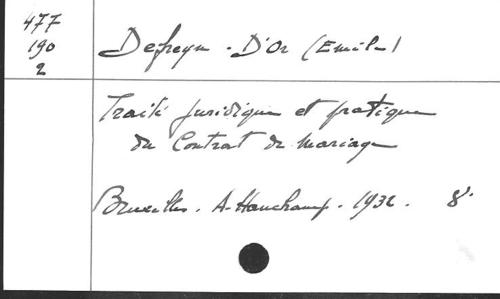 477
190
2
Defreyn - D'Or (Emile)
Traité juridique et pratique
du Contrat de mariage
Bruxelles. A. Hauchamp. 1932. 8°